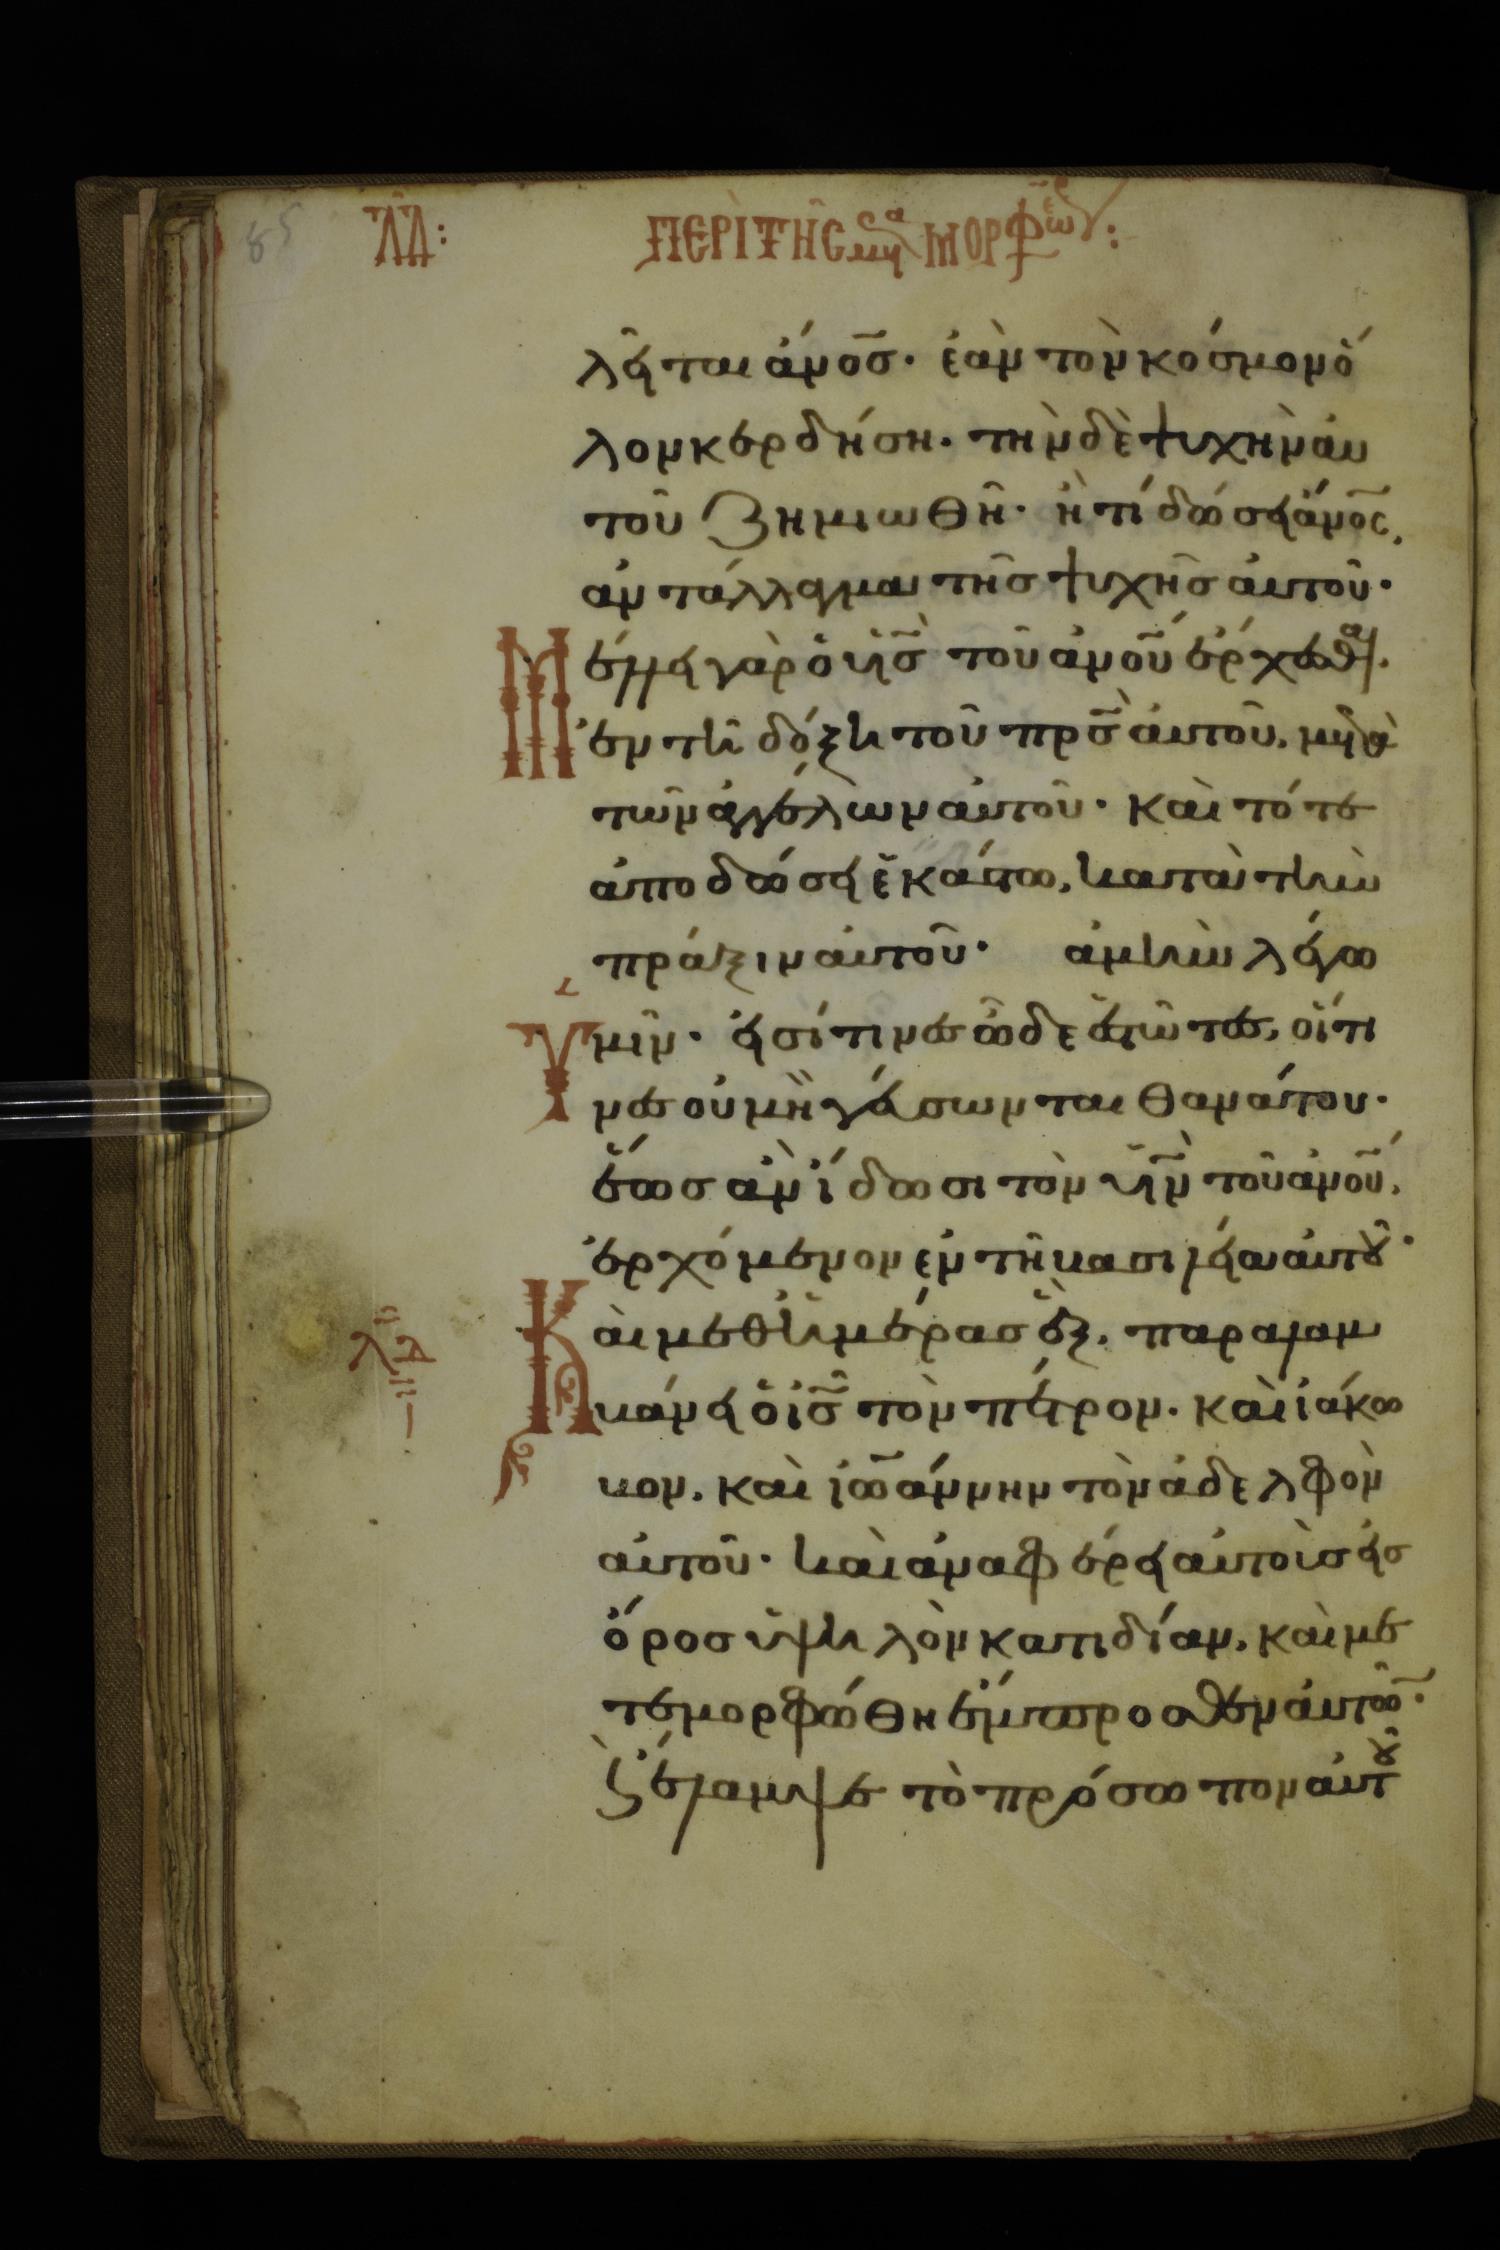 ΛΔ: ΠΕΡῚ ΤΗ͂Σ μετα ΜΟΡΦώσεως:
λεῖται ἄνο̅σ· ἐὰν τὸν κόσμον ὅ
λον κερδήση· τὴν δὲ ψυχὴν ἀυ
τοῦ ζημιωθῆ· ἢ τί δώσει ἄνο̅ς,
ἀντάλλαγμα τῆσ ψυχῆσ ἀυτοῦ·
Μέλλει γὰρ ὁ υἱ̅σ τοῦ ἀνο̅υ ἔρχεσθαι·
ἐν τῆ δόξη τοῦ πρ̅σ ἀυτοῦ, μετὰ
τῶν ἀγγέλων ἀυτοῦ· καὶ τότε
ἀποδώσει ἑκάστω, κατὰ τὴν
πράξιν ἀυτοῦ· ἀμὴν λέγω
Υμῖν· εἰσί τινεσ ὧδε ἑστῶτεσ, οἵτι
νεσ οὐ μὴ γεύσωνται θανάτου·
ἕωσ ἂν ἴδωσι τὸν υἱ̅ν τοῦ ἀνο̅υ,
ἐρχόμενον ἐν τῆ βασιλεία ἀυτοῦ·
Καὶ μεθ ἡμέρασ ἓξ, παραλαμ
λδ
βάνει ὁ ι̅σ τὸν πέτρον· καὶ ἰάκω
βον, καὶ ἰωάννην τὸν ἀδελφὸν
ἀυτοῦ· καὶ ἀναφέρει ἀυτοὺσ εἰσ
ὄροσ ὑψηλὸν κατιδίαν, καὶ με
τεμορφώθη ἔμπροσθεν ἀυτῶν·
ϗ ἔλαμψε τὸ πρόσωπον ἀυτοῦ